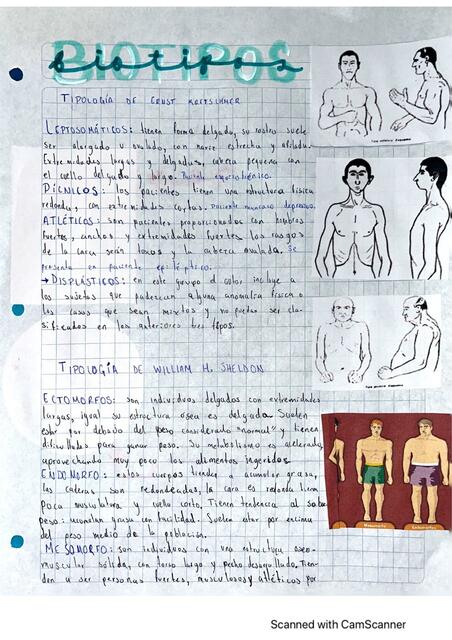 BIOTIPOS
biotipos
TIPOLOGÍA DE ERNST KRETSCHMER
LEPTOSOMÁTICOS: tienen forma delgada, su rostro suele
ser alargado u ovalado, con nariz estrecha y afilada.
Extremidades largas y delgadas, cabeza pequeña con
el cuello delgado y largo. Paciente esquizofrénico.
PÍCNICOS: los pacientes tienen una estructura física
redonda, con extremidades cortas. Paciente maniaco depresivo.
ATLÉTICOS: son pacientes proporcionados con hombros
fuertes, anchos y extremidades fuertes los rasgos
de la cara serán toscos y la cabeza ovalada. Se
presenta en paciente epiléptico.
→ DISPLÁSTICOS: en este grupo el autor incluye a
los sujetos que padezcan alguna anomalía física o
los casos que sean mixtos y no puedan ser cla-
sificados en los anteriores tres tipos.
TIPOLOGÍA DE WILLIAM H. SHELDON
ECTOMORFOS: son individuos delgados con extremidades
largas, igual su estructura ósea es delgada. Suelen
estar por debajo del peso considerado "normal" y tienen
dificultades para ganar peso. Su metabolismo es acelerado,
aprovechando muy poco los alimentos ingeridos.
ENDOMORFO: estos cuerpos tienden a acumular grasa,
las caderas son redondeadas, la cara es redonda tienen
poca musculatura y cuello corto, Tienen tendencia al sobre
peso: acumulan grasa con facilidad. Suelen estar por encima
del peso medio de la población.
MESOMORFO: son individuos con una estructura oseo-
muscular sólida, con torso largo y pecho desarrollado. Tien-
den a ser personas fuertes, musculosas y atléticas por
Mesomorfo
Endomorfo
Scanned with CamScanner